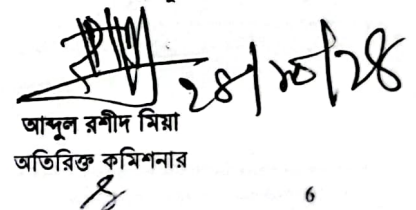 ২৪/১০/২৪
আব্দুল রশীদ মিয়া
অতিরিক্ত কমিশনার
6